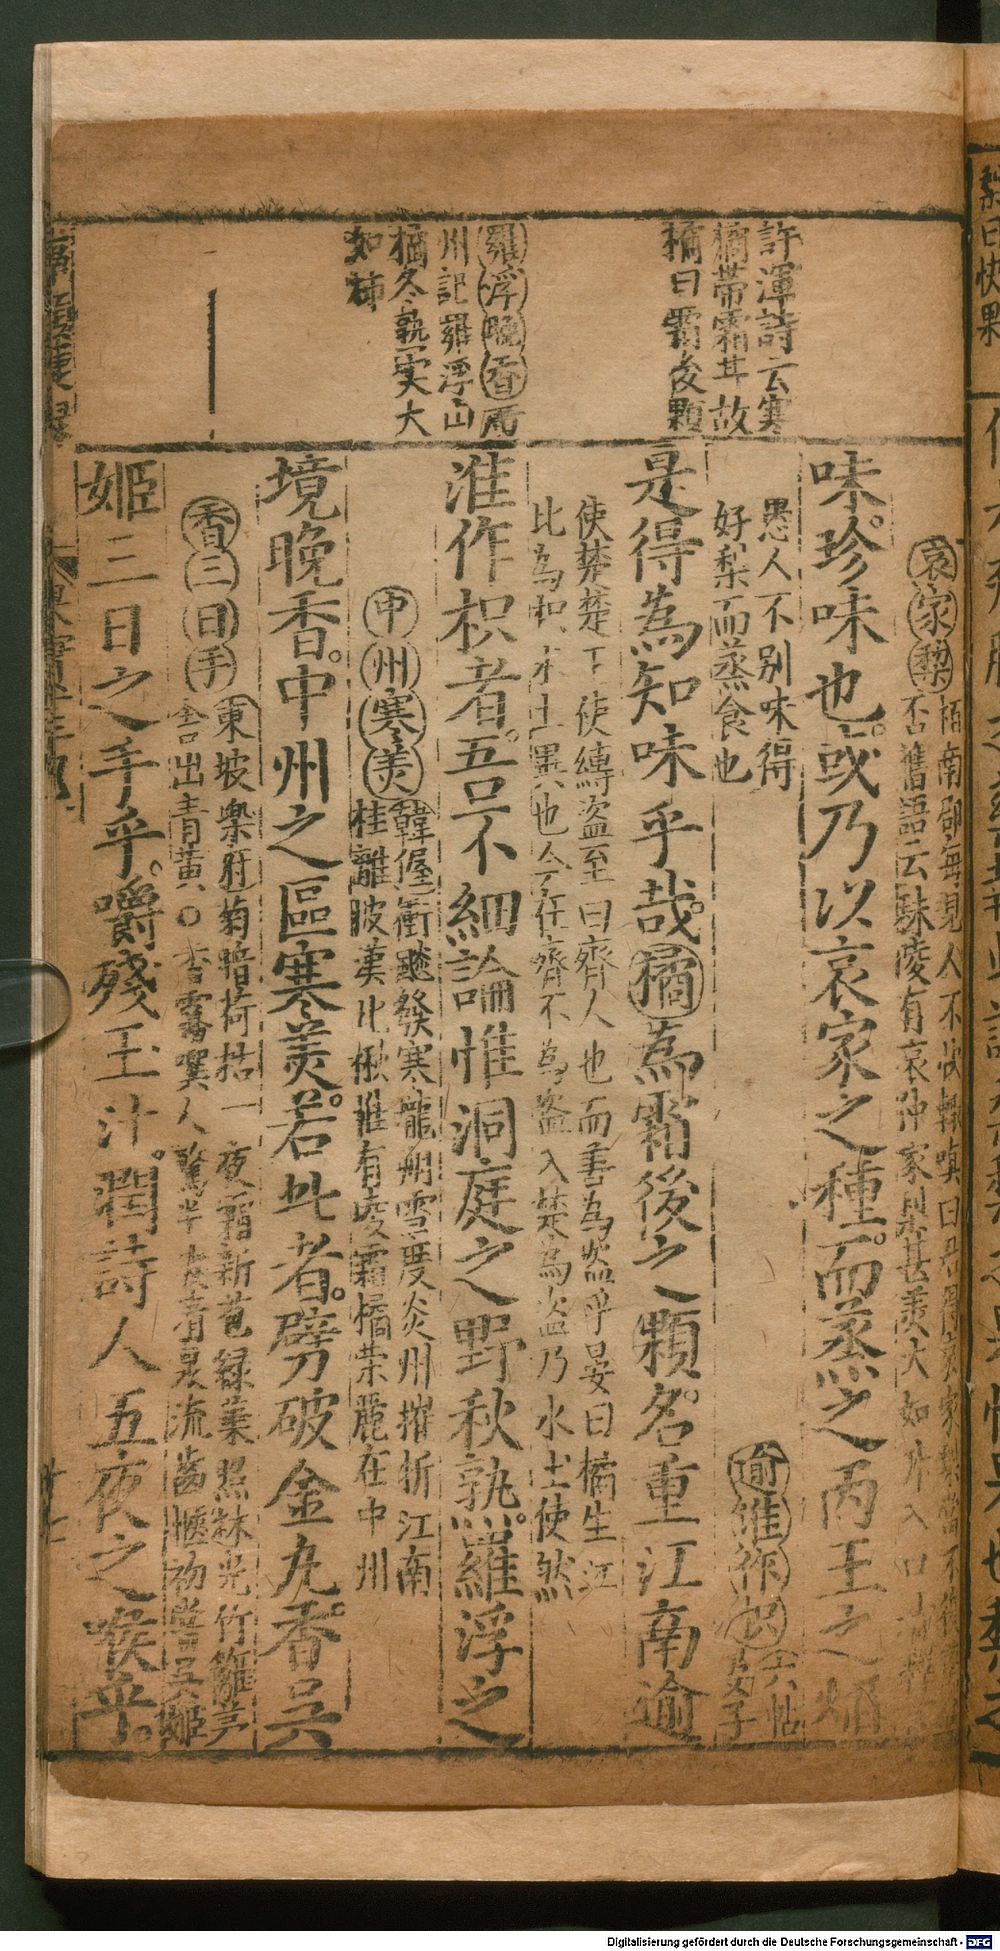 許渾詩云寒
橘帶霜耳故
橘曰霜後顆
羅浮晩香
州記羅浮山
橘冬熟実大
如柿
哀家梨
桓南郡每見人不快輒嗔曰君得哀家梨當不復
否舊語云秣陵有哀仲家梨甚美大如升入口
味珍味也或乃以哀家之種而蒸之丙王之
愚人不別味得
好梨而蒸食也
逾淮作枳
六帖
晏子
是得為知味乎哉橘為霜後之顆名重江南逾
使楚楚王使縳盜至曰齊人也而善為盜乎晏曰橘生江
比為枳水土異也今在齊不為盜入楚為盜乃水土使然
淮作枳者吾不細論惟洞庭之野秋熟羅浮之
中州寒羙
韓偓衝飈發寒龍朔雪度炎州摧折江南
桂離披漢北楸誰有凌霜橘榮麗在中州
境晩香中州之區寒羙若此者劈破金丸香吳
香三日手
東坡樂府菊暗荷枯一夜霜新苞緑葉照林光竹籬茅
舎出青黄○香霧噀人驚半破清泉流齒愜初嘗吳姬
姬三日之手乎嚼殘玉汁潤詩人五夜之喉乎
Digitalisierung gefördert durch die Deutsche Forschungsgemeinschaft - DFG